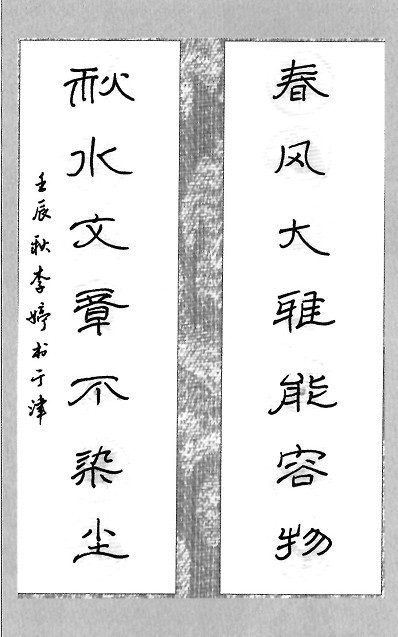 春风大雅能容物
秋水文章不染尘
壬辰秋李婷书于津